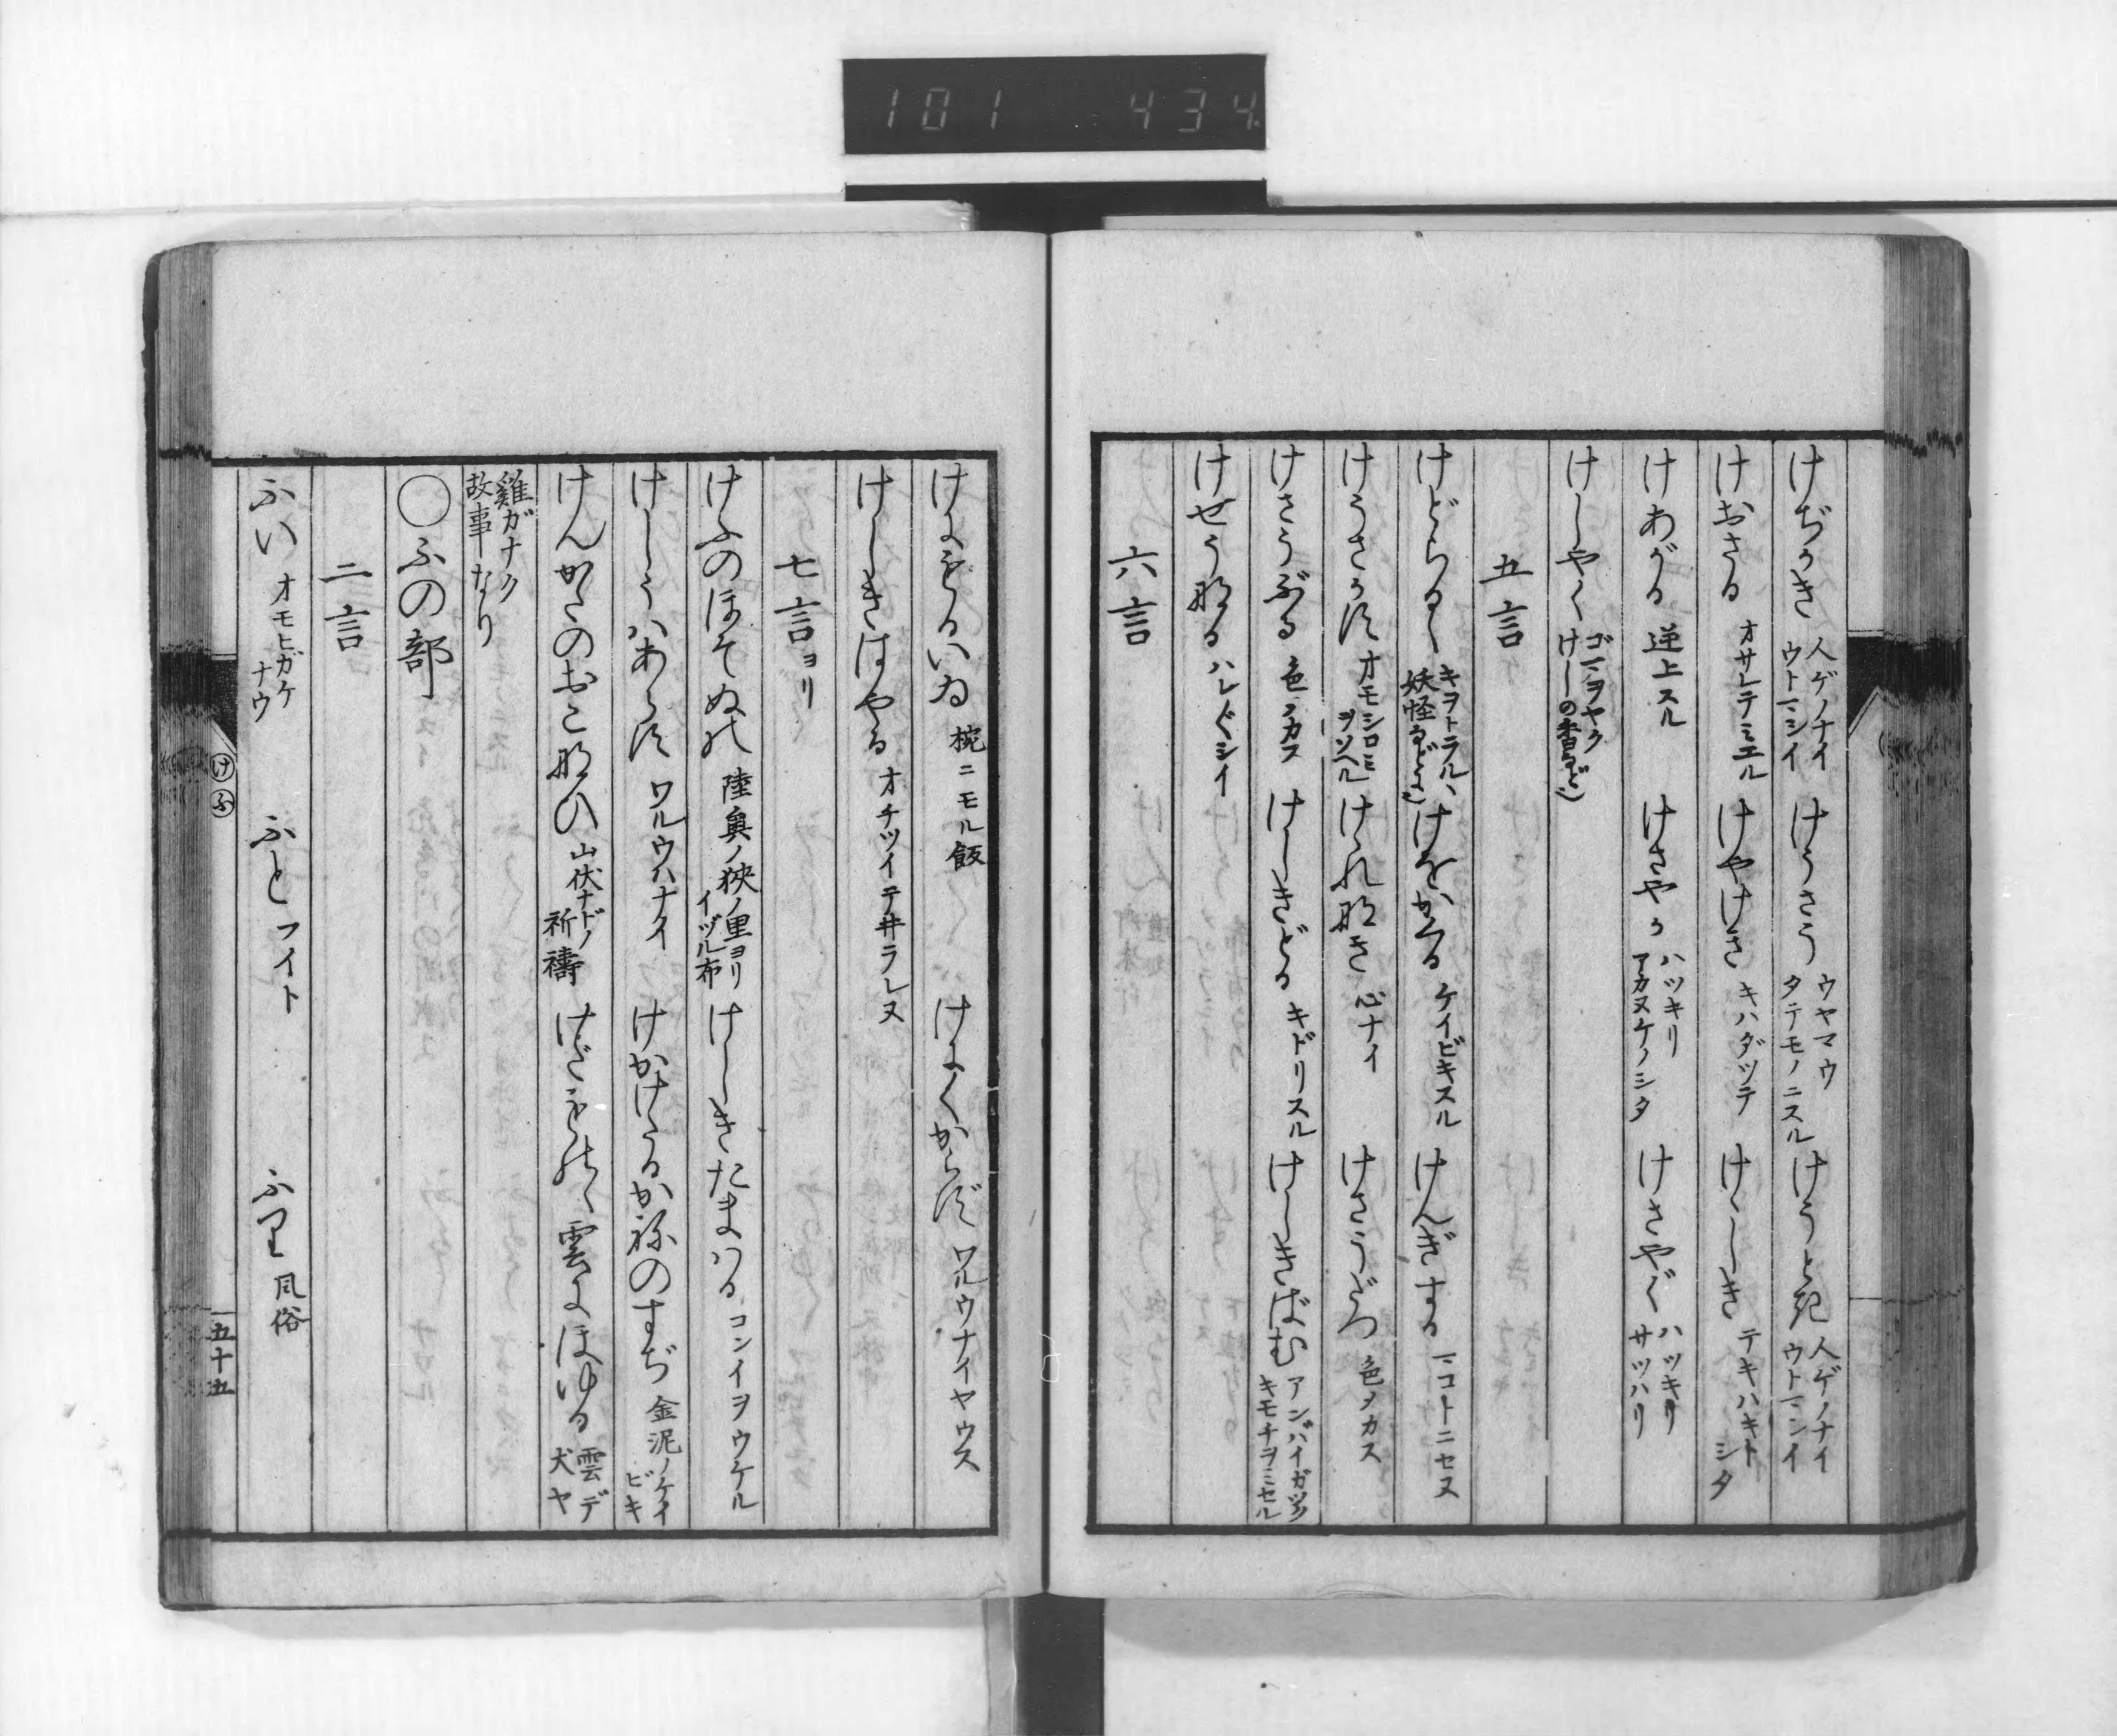 101 434
けぢかき 人ゲノナイ ウトマシイ けうさう ウヤマウ タテモノニスル けうとき 人ゲノナイ ウトマシイ
けおさる オサレテミエル けやけさ キハダツテ けゝしき テキハキト シタ
けあがる 逆上スル けさやか ハツキリ アカヌケノシタ けさやぐ ハツキリ サツハリ
けしやく ゴマヲヤク けしの香など
五言
けどらるゝ キヲトラルヽ 妖怪などに けをかくる ケイビキスル けんぎする マコトニセヌ
けうさかす オモシロミ ヲソヘル けゝれなき 心ナイ けさうだつ 色メカス
けさうぶる 色メカス けしきどる キドリスル けしきばむ アンバイガツク キモチヲミセル
けせうなる ハレ〴〵シイ
六言
けにもるいゐ 椀ニモル飯 けにくからず ワルウナイヤウス
けしきはやる オチツイテ井ラレヌ
七言ヨリ
けふのほそぬの 陸奥ノ狹ノ里ヨリ イヅル布 けしきたまはる コンイヲウケル
けしうはあらず ワルウハナイ けかけたるかねのすぢ 金泥ノケイ ビキ
けんかたのおこなひ 山伏ナドノ 祈禱 けだものゝ雲にほゆる 雲デ 犬ヤ
雞ガナク 故事なり
〇ふの部
二言
ふい オモヒガケ ナウ ふと フイト ふり 風俗
け ふ
五十五